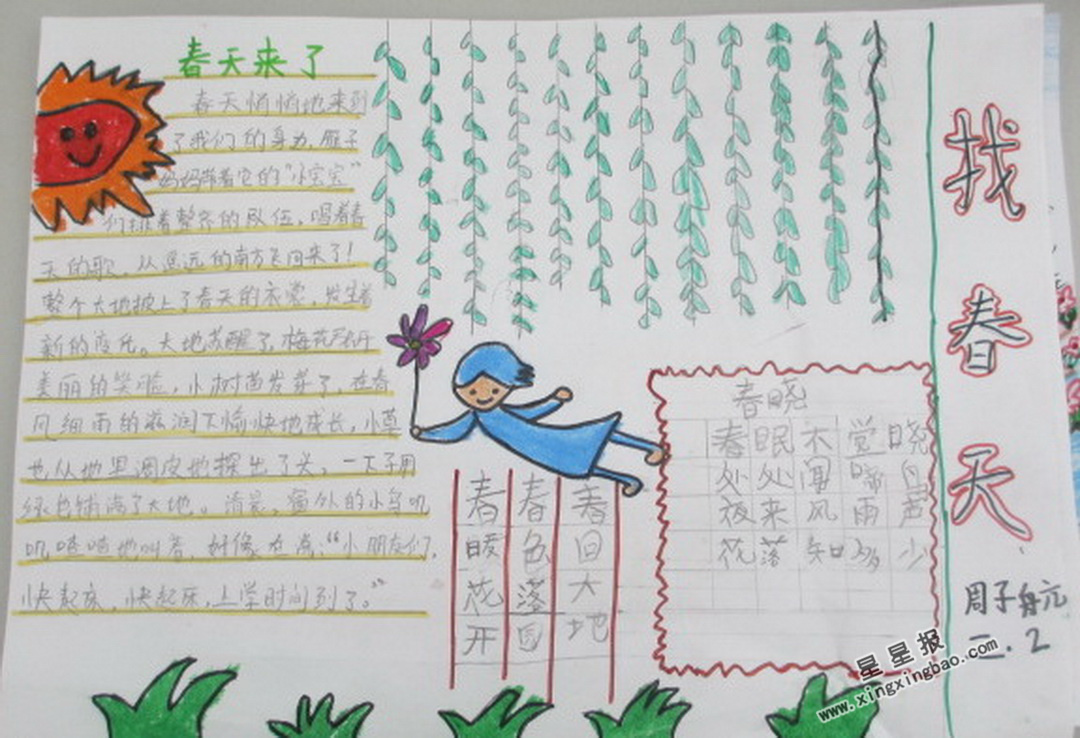 春天来了
春天悄悄地来到
了我们的身边，雁子
妈妈带着它的“小宝宝”
们排着整齐的队伍，唱着春
天的歌。从遥远的南方飞回来了！
整个大地披上了春天的衣裳，发生着
新的变化。大地苏醒了，梅花绽开
美丽的笑脸，小树苗发芽了，在春
风细雨的滋润下愉快地成长，小草
也从地里调皮地探出了头，一下子用
绿色铺满了大地。清晨，窗外的小鸟叽
叽喳喳地叫着，好像在说：“小朋友们，
快起床，快起床，上学时间到了。”
春暖花开
春色落园
春回大地
春晓
春眠不觉晓
处处闻啼鸟
夜来风雨声
花落知多少
找春天
周子舟元
二.2
星星报
www.xingxingbao.com